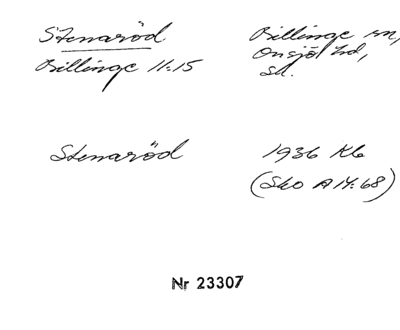 Stenaröd
Billinge 11:15
Billinge sn,
Onsjö hd,
Sk.
Stenaröd
1936 Kb
(Sko A 14:68)
Nr 23307